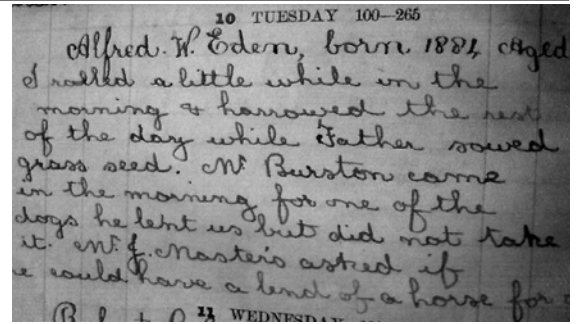 10 TUESDAY 100—265
Alfred. W. Eden, born 1881, Aged
I rolled a little while in the
morning & harrowed the rest
of the day while Father sowed
grass seed. Mr Burston came
in the morning for one of the
dogs he lent us but did not take
it. Mr. J. Masters asked if
e could have a lend of a horse for
11 WEDNESDAY